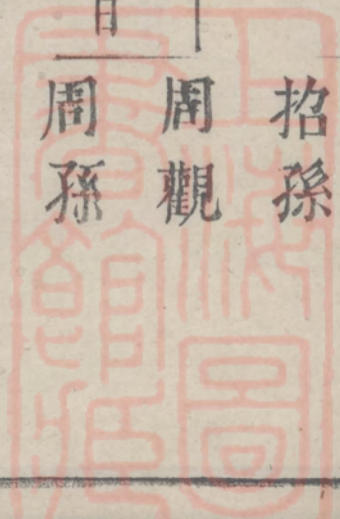 招孫
周觀
周孫